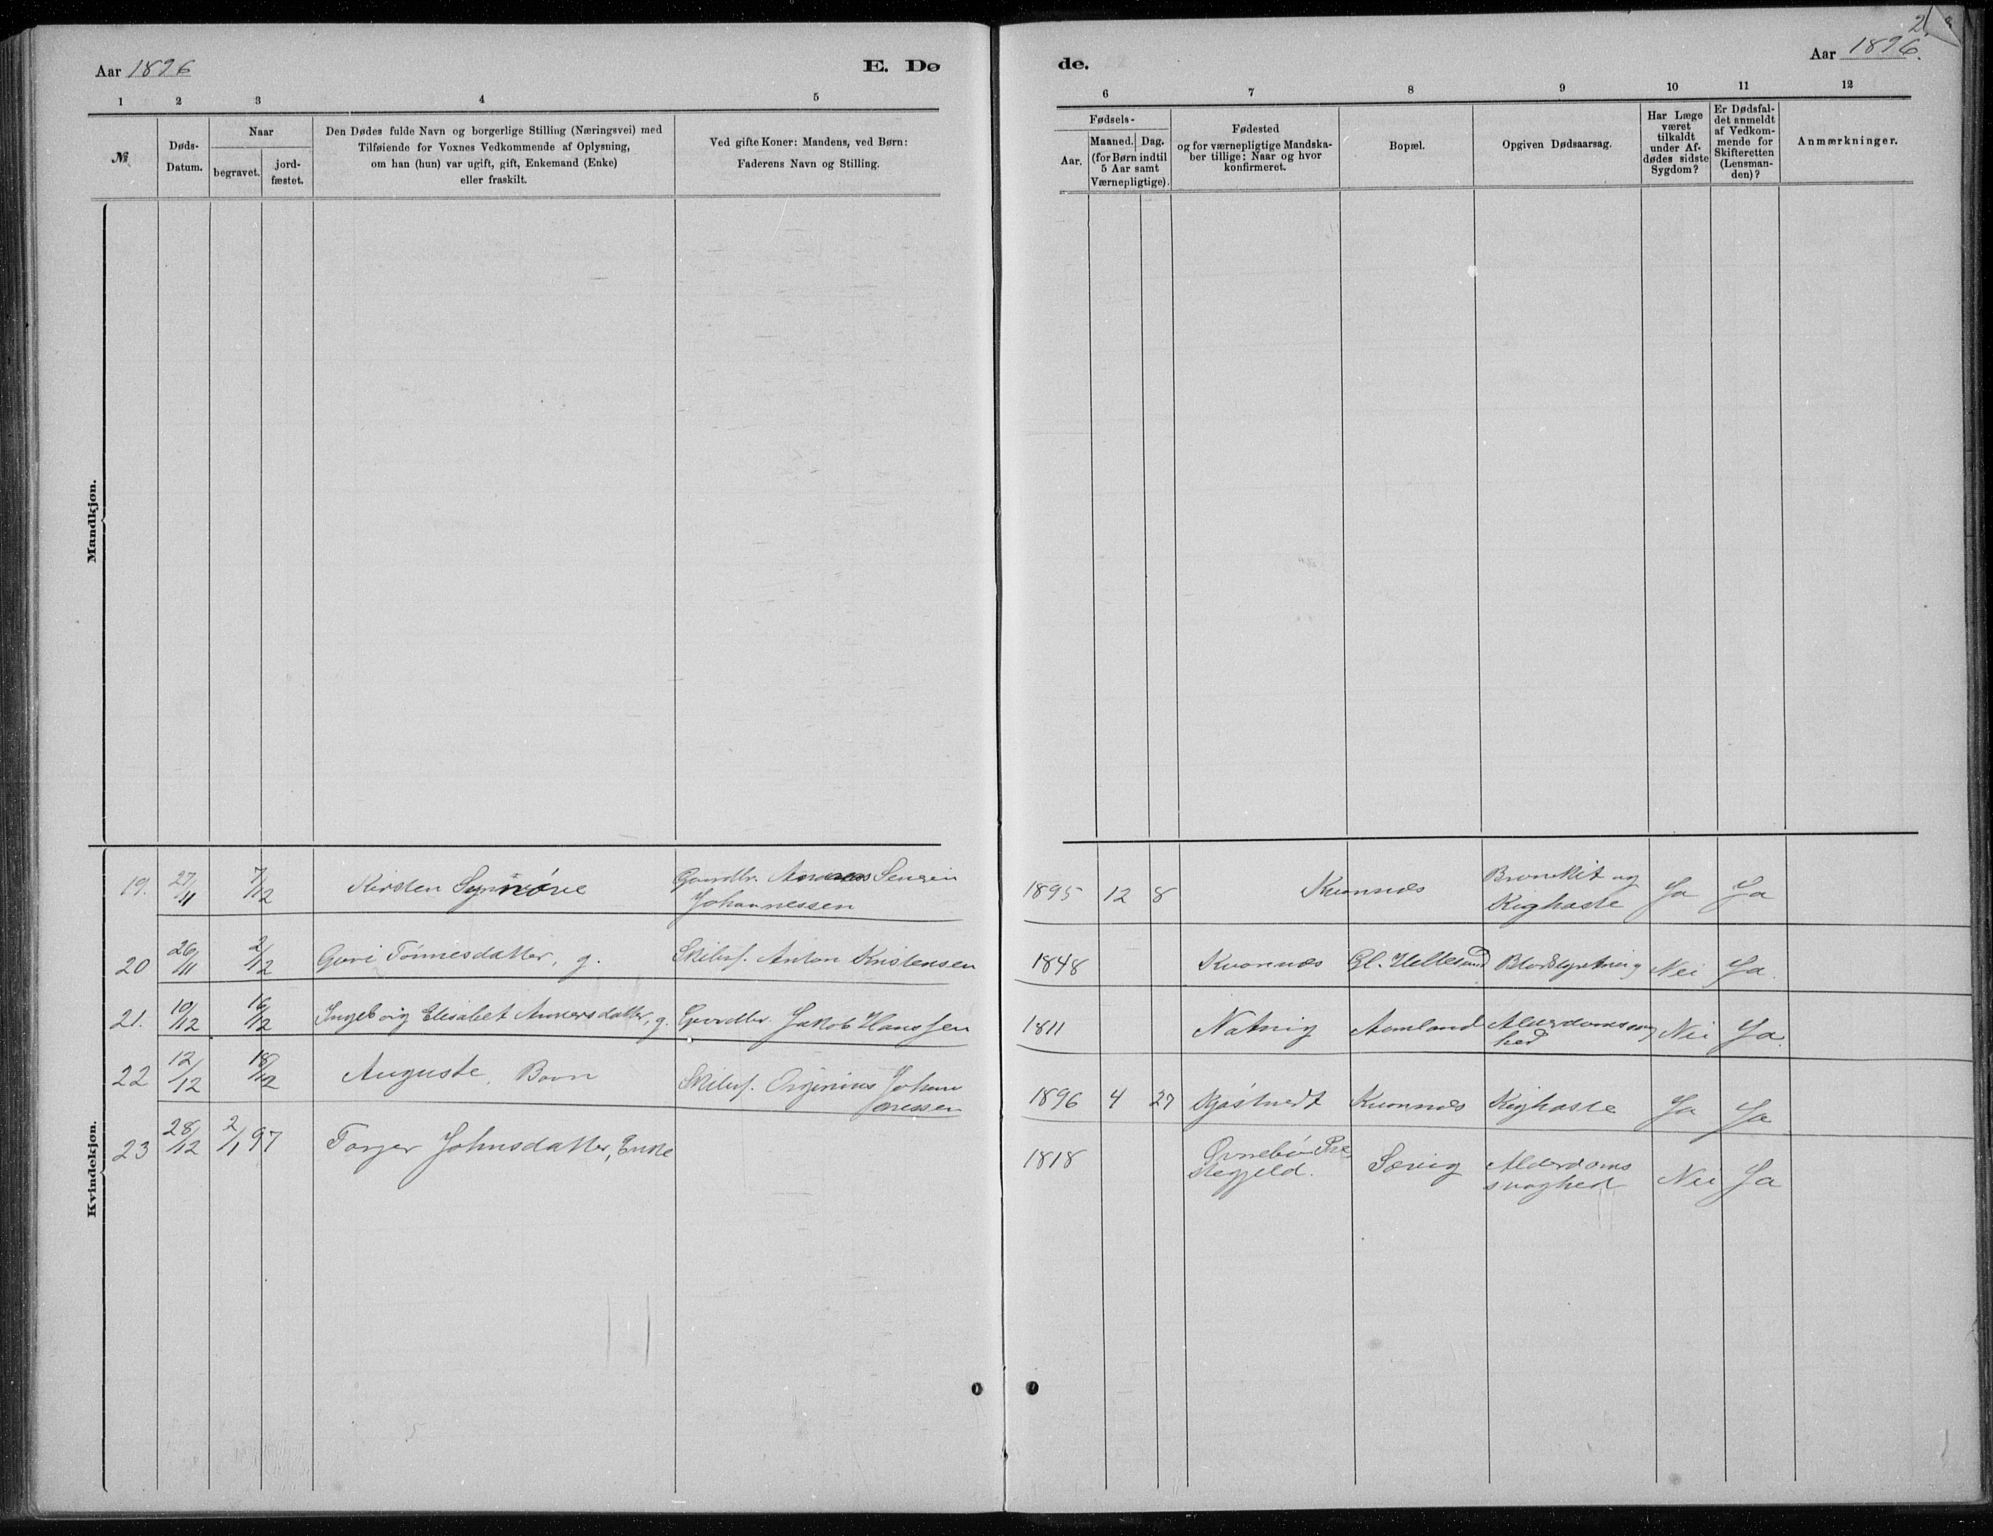 Aar 1896
E. Dø
de.
Aar 1896.
1 2 3 4 5
6 7 8 9 10 11 12
№
Døds-
Datum.
Naar
begravet.
jord-
fæstet.
Den Dødes fulde Navn og borgerlige Stilling (Næringsvei) med
Tilføiende for Voxnes Vedkommende af Oplysning,
om han (hun) var ugift, gift, Enkemand (Enke)
eller fraskilt.
Ved gifte Koner: Mandens, ved Børn:
Faderens Navn og Stilling.
Fødsels-
Aar.
Maaned. Dag.
(for Børn indtil
5 Aar samt
Værnepligtige).
Fødested
og for værnepligtige Mandska-
ber tillige: Naar og hvor
konfirmeret.
Bopæl.
Opgiven Dødsaarsag.
Har Læge
været
tilkaldt
under Af-
dødes sidste
Sygdom?
Er Dødsfal-
det anmeldt
af Vedkom-
mende for
Skifteretten
(Lensman-
den)?
Anmærkninger.
Mandkjøn.
Kvindekjøn.
19. 27/11 7/12 Kirsten Synnøve Gaardbr. Johannessen 1895 12 8 Kvannes og Kighoste Ja Ja
20 26/11 2/12 Tønnesdatter, g. Anton Kristensen 1848 Kvannes Gl. Hellesund Nei Ja.
21. 10/12 16/12 Ingeborg Elisabet g. Gaardbr. Jakob Hanssen 1811 Natvig Aamland Nei Ja.
22 12/12 18/12 Auguste, Barn Johan
nessen 1896 4 27 Kvannes Kighoste Ja Ja
23 28/12 2/1 97 Torjer Johnsdatter, Enke 1818 Øvrebø Præ
stegjeld. Alderdoms
svaghed Nei Ja